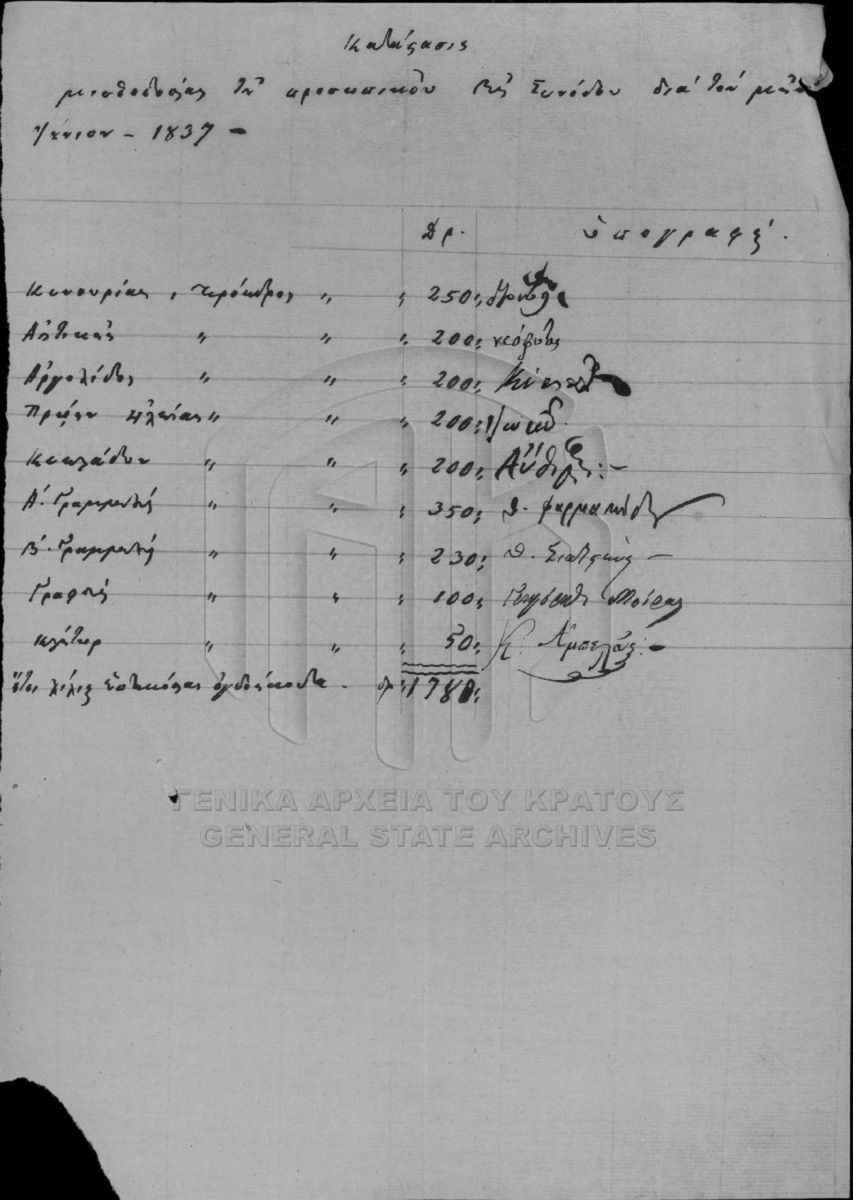 Κατάστασις
μισθοδοσίας τοῦ προσωπικοῦ τῆς Συνόδου διὰ τὸν μῆνα
Ἰούνιον - 1837 -
Δρ. ὑπογραφή.
Κυνουρίας, πρόεδρος " " 250:
Ἀττικῆς " " " 200: νεόφυτος
Ἀργολίδος " " " 200:
Πρώην Ἠλείας " " " 200:
Κυκλάδων " " " 200: Ἄνθιμος:-
Α΄. Γραμματεὺς " " " 350: Θ. Φαρμακίδης
Β΄. Γραμματεὺς " " " 230:
Γραφεὺς " " " 100:
Κλήτωρ " " " 50: Κ. Ἀμπελᾶς:-
ἤτοι χίλιαι ἑπτακόσιαι ὀγδοήκοντα. δρ: 1780:
ΓΕΝΙΚΑ ΑΡΧΕΙΑ ΤΟΥ ΚΡΑΤΟΥΣ
GENERAL STATE ARCHIVES